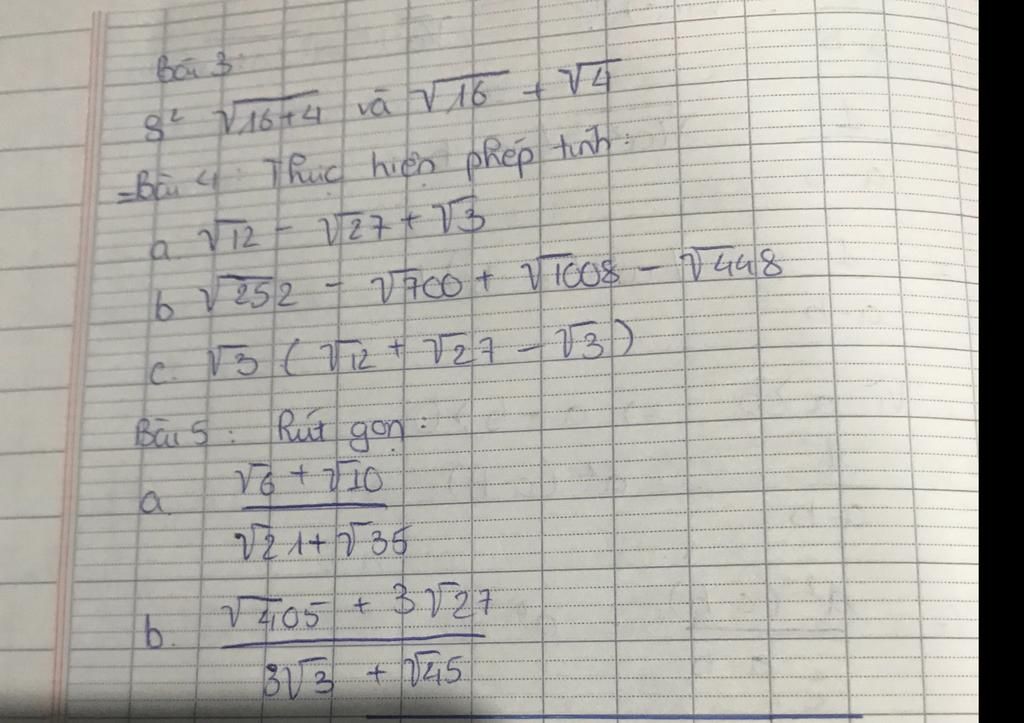 Bài 3:
S² √16+4 và √16 + √4
Bài 4: Thực hiện phép tính:
a √12 - √27 + √3
b √252 - √700 + √1008 - √448
c. √3 ( √12 + √27 - √3 )
Bài 5: Rút gọn:
a. √6 + √10
√21 + √35
b. √405 + 3√27
3√3 + √45